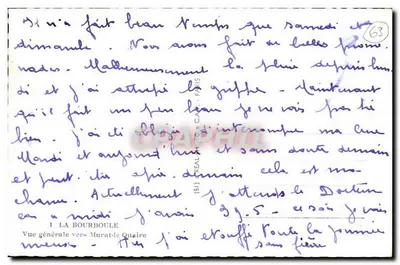 Il n'a fait beau temps que samedi et
dimanche. Nous avons fait de belles prome
nades. Malheureusement la pluie depuis lun
di et j'ai attrapé la grippe. Maintenant
qu'il fait un peu beau je ne vais pas très
bien. j'ai été obligée d'interrompre ma cure
Mardi et aujourd'hui et sans doute demain
et peut être après demain cela est mo
chance. Actuellement j'attends le Docteur
car à midi j'avais 39.5 - ce soir je vais
1 LA BOURBOULE
Vue générale vers Murat-le-Quaire
mieux - Hier j'ai étouffé toute la journée
sans fièvre
63